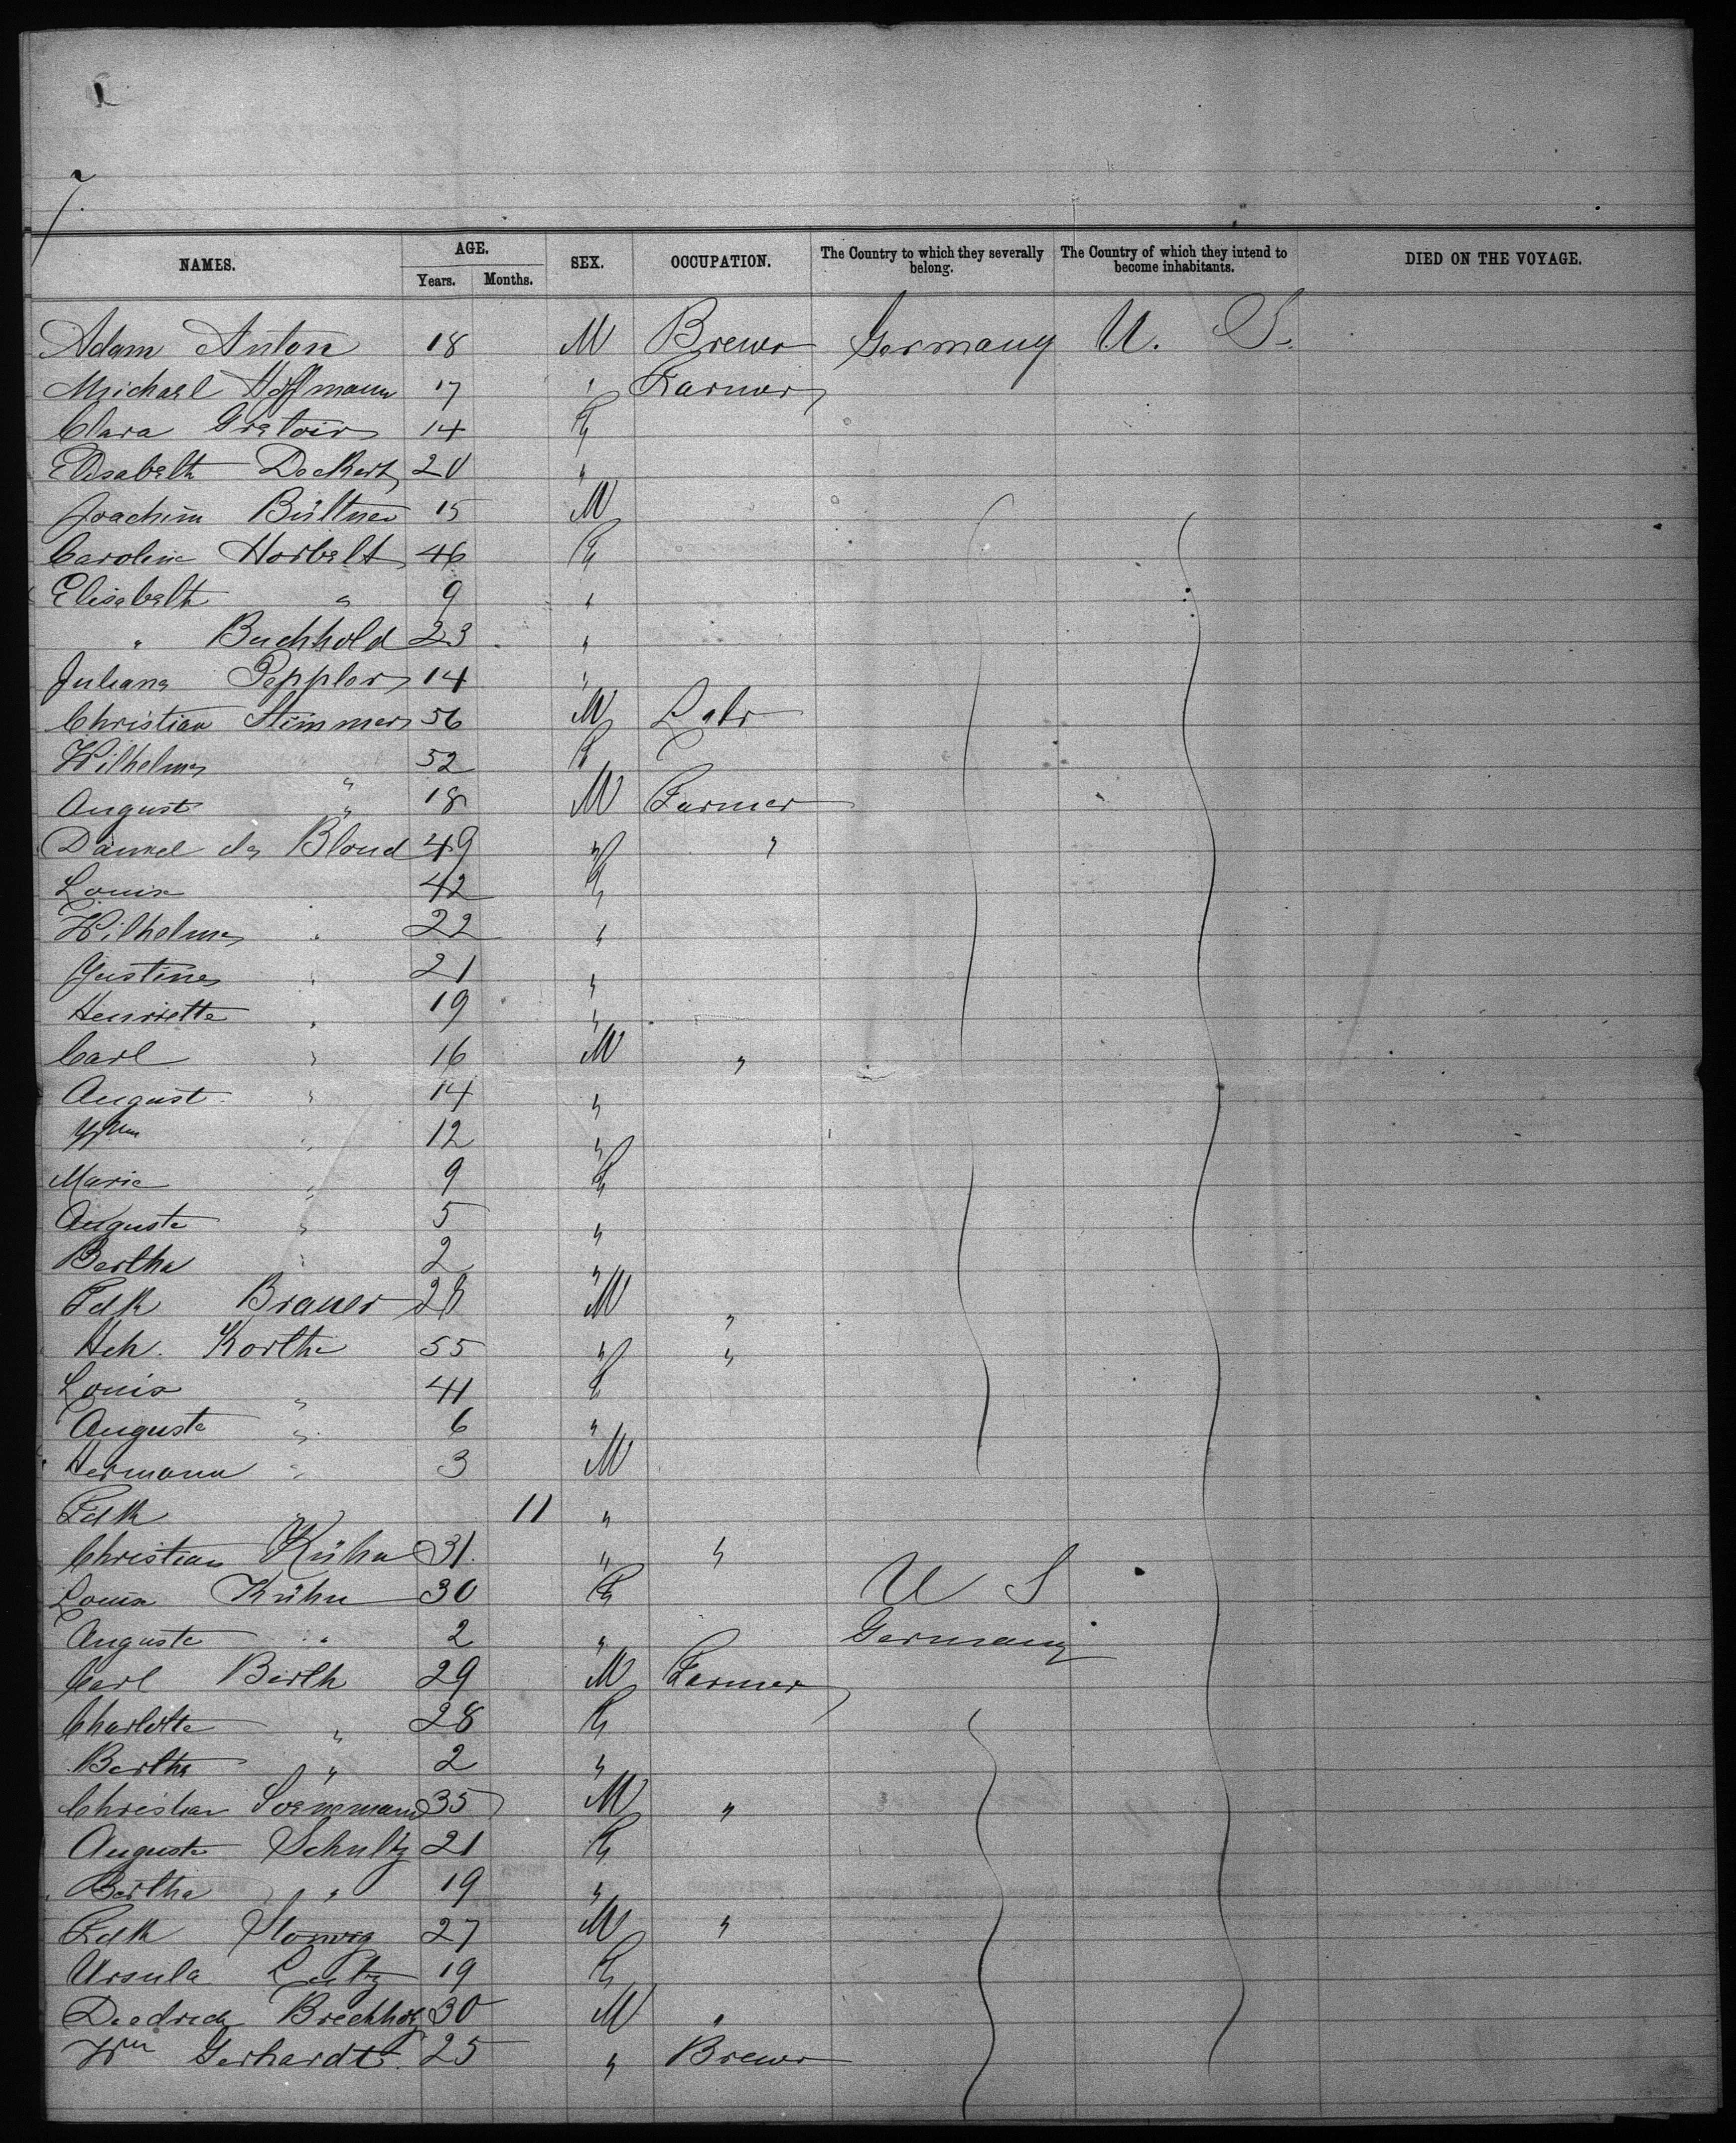 7.
NAMES. AGE. SEX. OCCUPATION. The Country to which they severally belong. The Country of which they intend to become inhabitants. DIED ON THE VOYAGE.
Years. Months.
Adam Anton 18 M Brewr Germany U. S.
Michael Hoffmann 17 " Farmer
Clara 14 F
Elisabeth Deckert 20 "
Joachim Bültner 15 M
Caroline Horbelt 46 F
Elisabeth " 9 "
" Buchhold 23 "
Juliana Peppler 14 "
Christian Stimmer 56 M Labr
Wilhelma " 52 F
August " 18 M Farmer
Daniel de Bloud 49 " "
Louisa 42 F
Wilhelma " 22 "
Justine " 21 "
Henriette " 19 "
Carl " 16 M "
August " 14 "
Wm " 12 "
Marie " 9 F
Auguste " 5 "
Bertha " 2 "
Fdk Brauer 28 M "
Hch. Korth 55 " "
Louis " 41 F
Auguste " 6 "
Hermann " 3 M
Fdk " 11 "
Christian Kühn 31 " "
Louisa Kühn 30 F U S
Auguste " 2 " Germany
Carl Barth 29 M Farmer
Charlotte " 28 F
Bertha " 2 "
Christian 35 M "
Auguste Schultz 21 F
Bertha " 19 "
Fdk 27 M "
Ursula Lutz 19 F
Deedrich Brechholz 30 M "
Wm Gerhardt 25 " Brewr